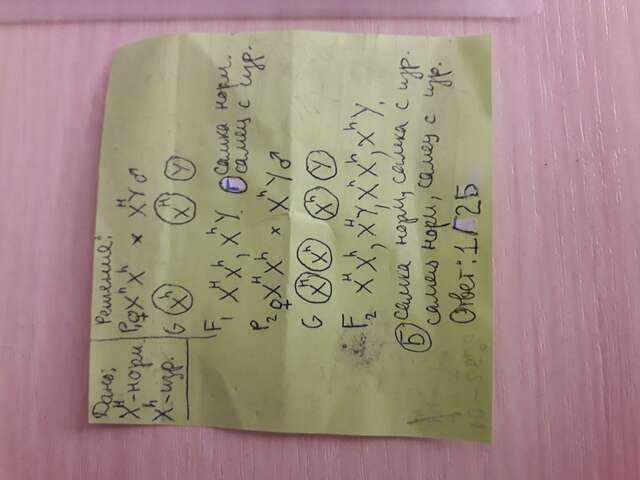 Дано:
X^H-норм.
X^h-изр.
Решение:
P₁♀X^hX^h × X^HY♂
G (X^h) (X^H) (Y)
F₁ X^HX^h, X^hY. Г самка норм.
самец с изр.
P₂ ♀X^HX^h × X^hY♂
G (X^H)(X^h) (X^h) (Y)
F₂ X^HX^h, X^HY, X^hX^h, X^hY.
Б самка норм, самка с изр.
самец норм, самец с изр.
Ответ: 1Г2Б